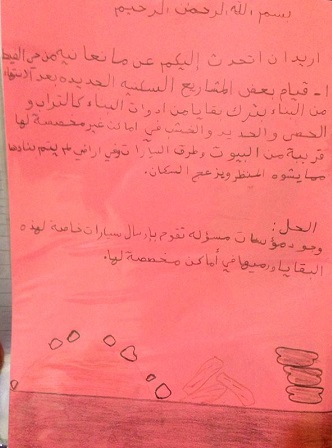 بسم الله الرحمن الرحيم
اريد ان اتحدث إليكم عن ما نعانيه من في
١- قيام بعض المشاريع السكنيه الجديده بعد الانتهاء
من البناء بترك بقايا من ادوات البناء كالتراب و
الحصى والحديد والخشب في اماكن غير مخصصة لها
قريبة من البيوت وطرق السيارات وفي اراضي لم يتم بناءها
مما يشوه المنظر ويزعج السكان.
الحل:
وجود مؤسسات مسؤله تقوم بإرسال سيارات خاصة لهذه
البقايا ورميها في أماكن مخصصة لها.